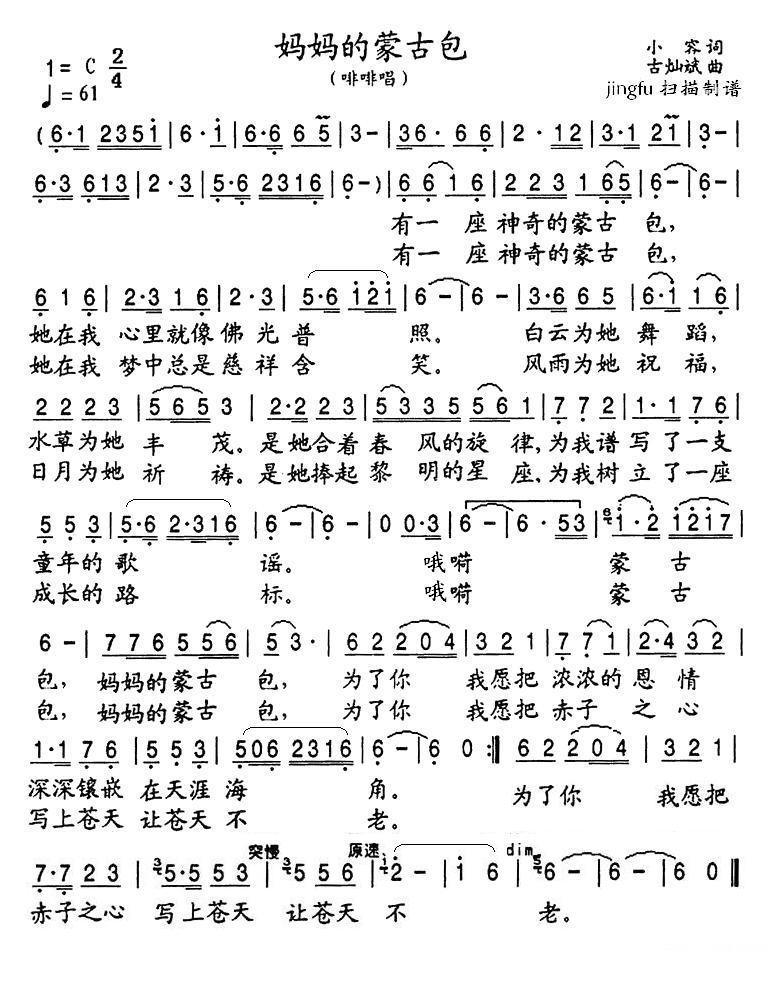 妈妈的蒙古包
(啡啡唱)
1= C 2/4
♩= 61
小 容 词
古灿斌 曲
jingfu 扫描制谱
(6·1 2351|6·1|6·6 66|3-|36· 66|2·12|3·1 21|3-|
6·3 613|2·3|5·6 2316|6-)|66 16|223 165|6-|6-|
有一 座 神奇的蒙古 包,
有一 座 神奇的蒙古 包,
6 1 6|2·3 1 6|2·3|5·6 121|6-|6-|3·6 6 5|6·1 1 6|
她在我 心里就像佛光普 照。 白云为她 舞 蹈,
她在我 梦中总是慈祥含 笑。 风雨为她 祝 福,
2 2 2 3|5 6 5 3|2·2 2 3|5 3 3 5 5 5 6 1|7 7 2|1·1 7 6|
水草为她 丰 茂。是她合着春 风的旋 律,为我谱写了一支
日月为她 祈 祷。是她捧起黎 明的星 座,为我树立了一座
5 5 3|5·6 2·316|6-|6-|0 0·3|6-|6·53|1·2 1217|
童年的歌 谣。 哦嗬 蒙 古
成长的路 标。 哦嗬 蒙 古
6-|7 7 6 5 5 6|5 3·|6 2 2 0 4|3 2 1|7 7 1|2·4 3 2|
包, 妈妈的蒙古 包, 为了你 我愿把 浓浓的恩 情
包, 妈妈的蒙古 包, 为了你 我愿把 赤子 之心
1·1 7 6|5 5 3|506 2316|6-|6 0:‖6 2 2 0 4|3 2 1|
深深镶嵌 在天涯海 角。 为了你 我愿把
写上苍天 让苍天不 老。
突慢 原速 dim
7·7 2 3|5·5 5 3|5 5 5|2-|1 6|6-|6-|6 0‖
赤子之心 写上苍天 让苍天 不 老。